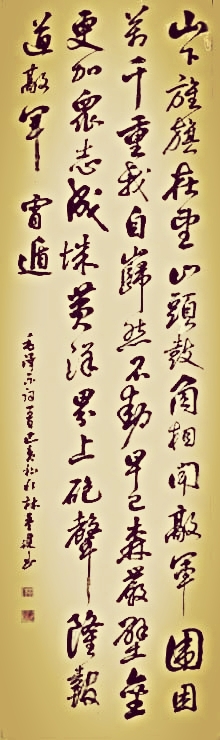 山下旌旗在望山頭鼓角相聞敵軍圍困
萬千重我自巋然不動早已森嚴壁壘
更加衆志成城黃洋界上砲聲隆報
道敵軍宵遁
毛澤东词一首己亥秋於林書